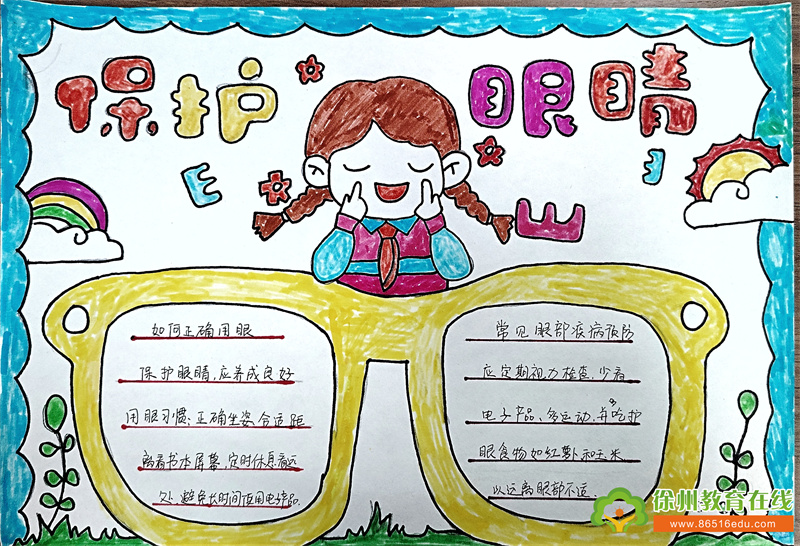 保护眼睛
E
E
如何正确用眼
保护眼睛，应养成良好
用眼习惯：正确坐姿合适距
离看书本屏幕，定时休息看远
处，避免长时间使用电子产品.
常见眼部疾病预防
应定期视力检查，少看
电子产品、多运动，多吃护
眼食物如红萝卜和玉米
以远离眼部不适.
徐州教育在线
www.86516edu.com